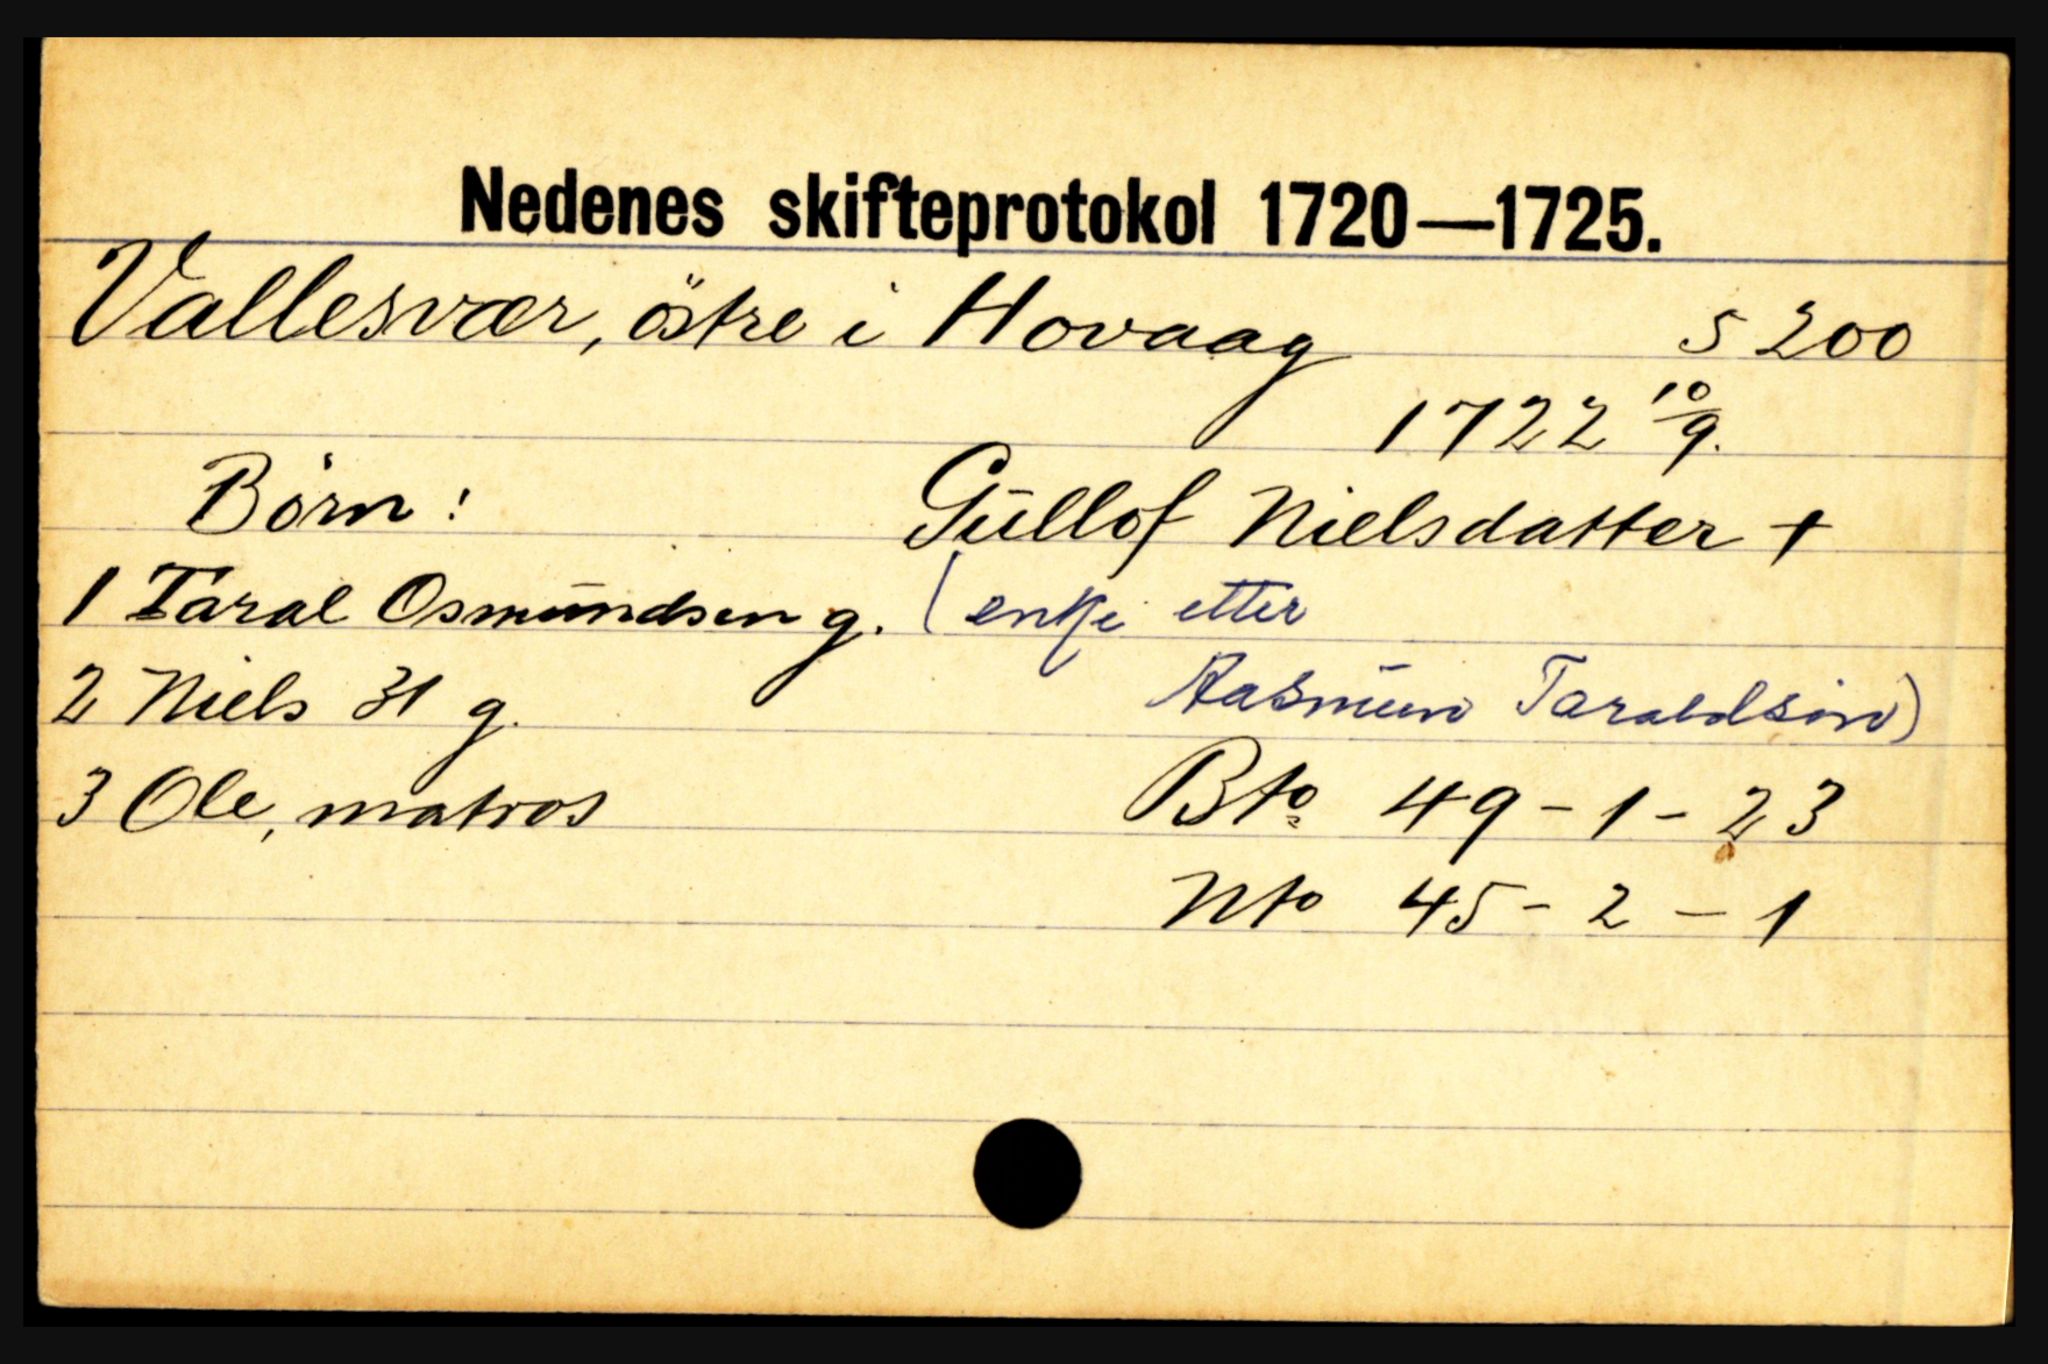 Nedenes skifteprotokol 1720—1725.
Vallesvær, östre i Hovaag s 200
1722 10/9.
Börn: Gūllof Nielsdatter +
1 Taral Osmūndsen g. (enke etter
2 Niels 31 g. Aasmūn Taraldsön)
3 Ole, matros Bto 49 - 1 - 23
Nto 45 - 2 - 1